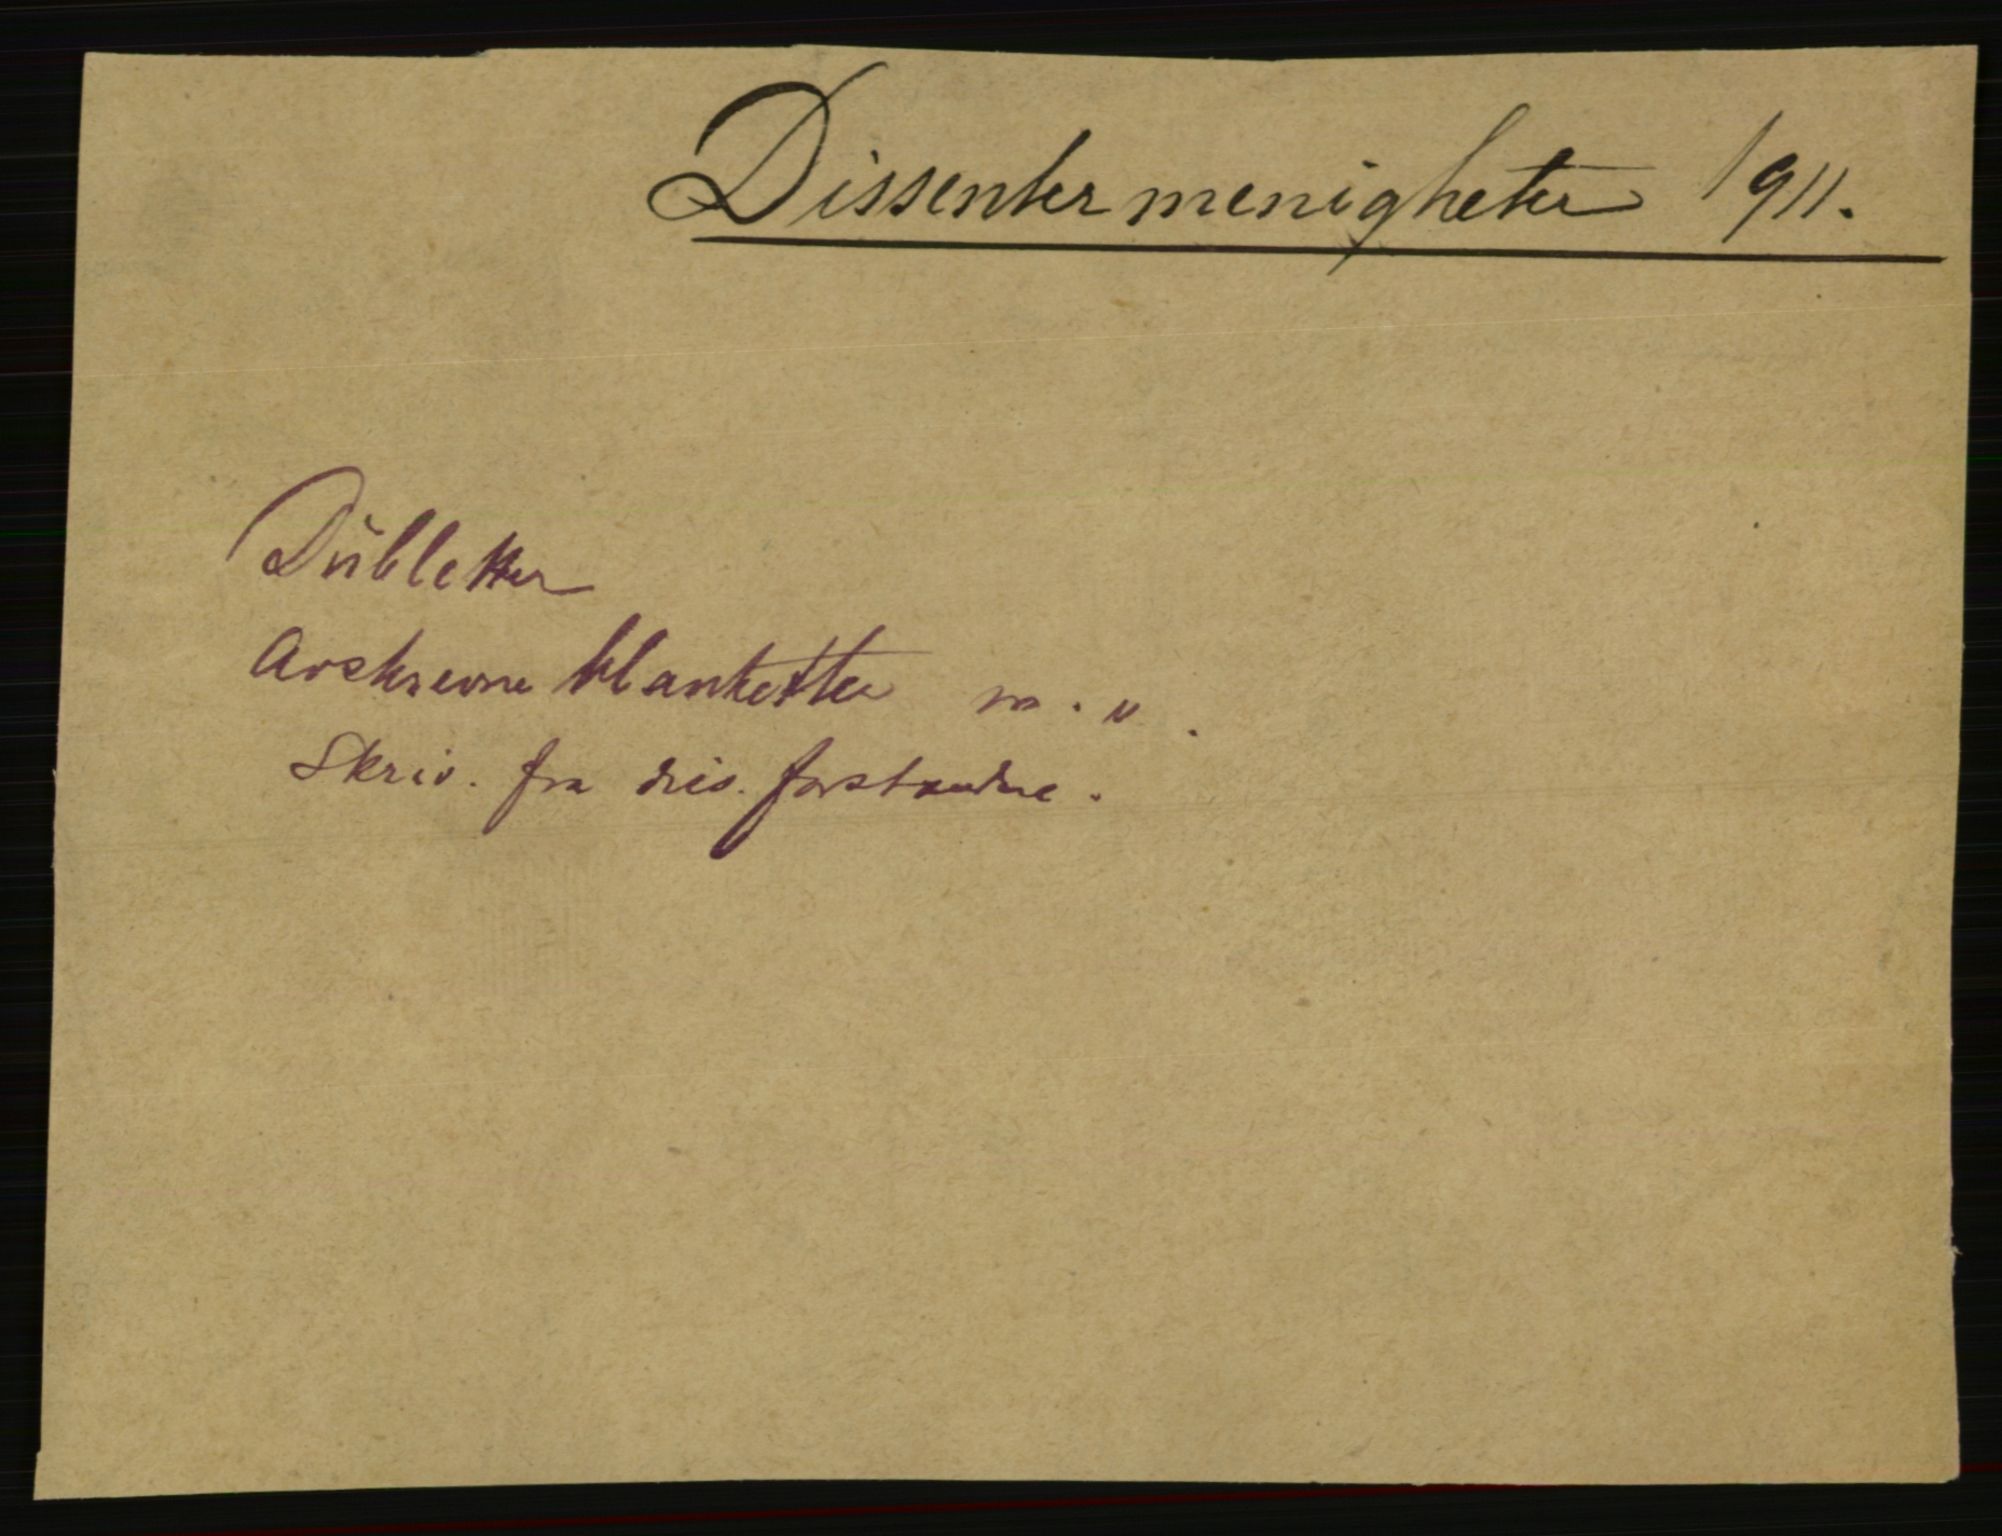 Dissentermenigheter 1911.
Dubletter
Avskrevne blanketter m. v.
Skriv. fra dis. forstandere.